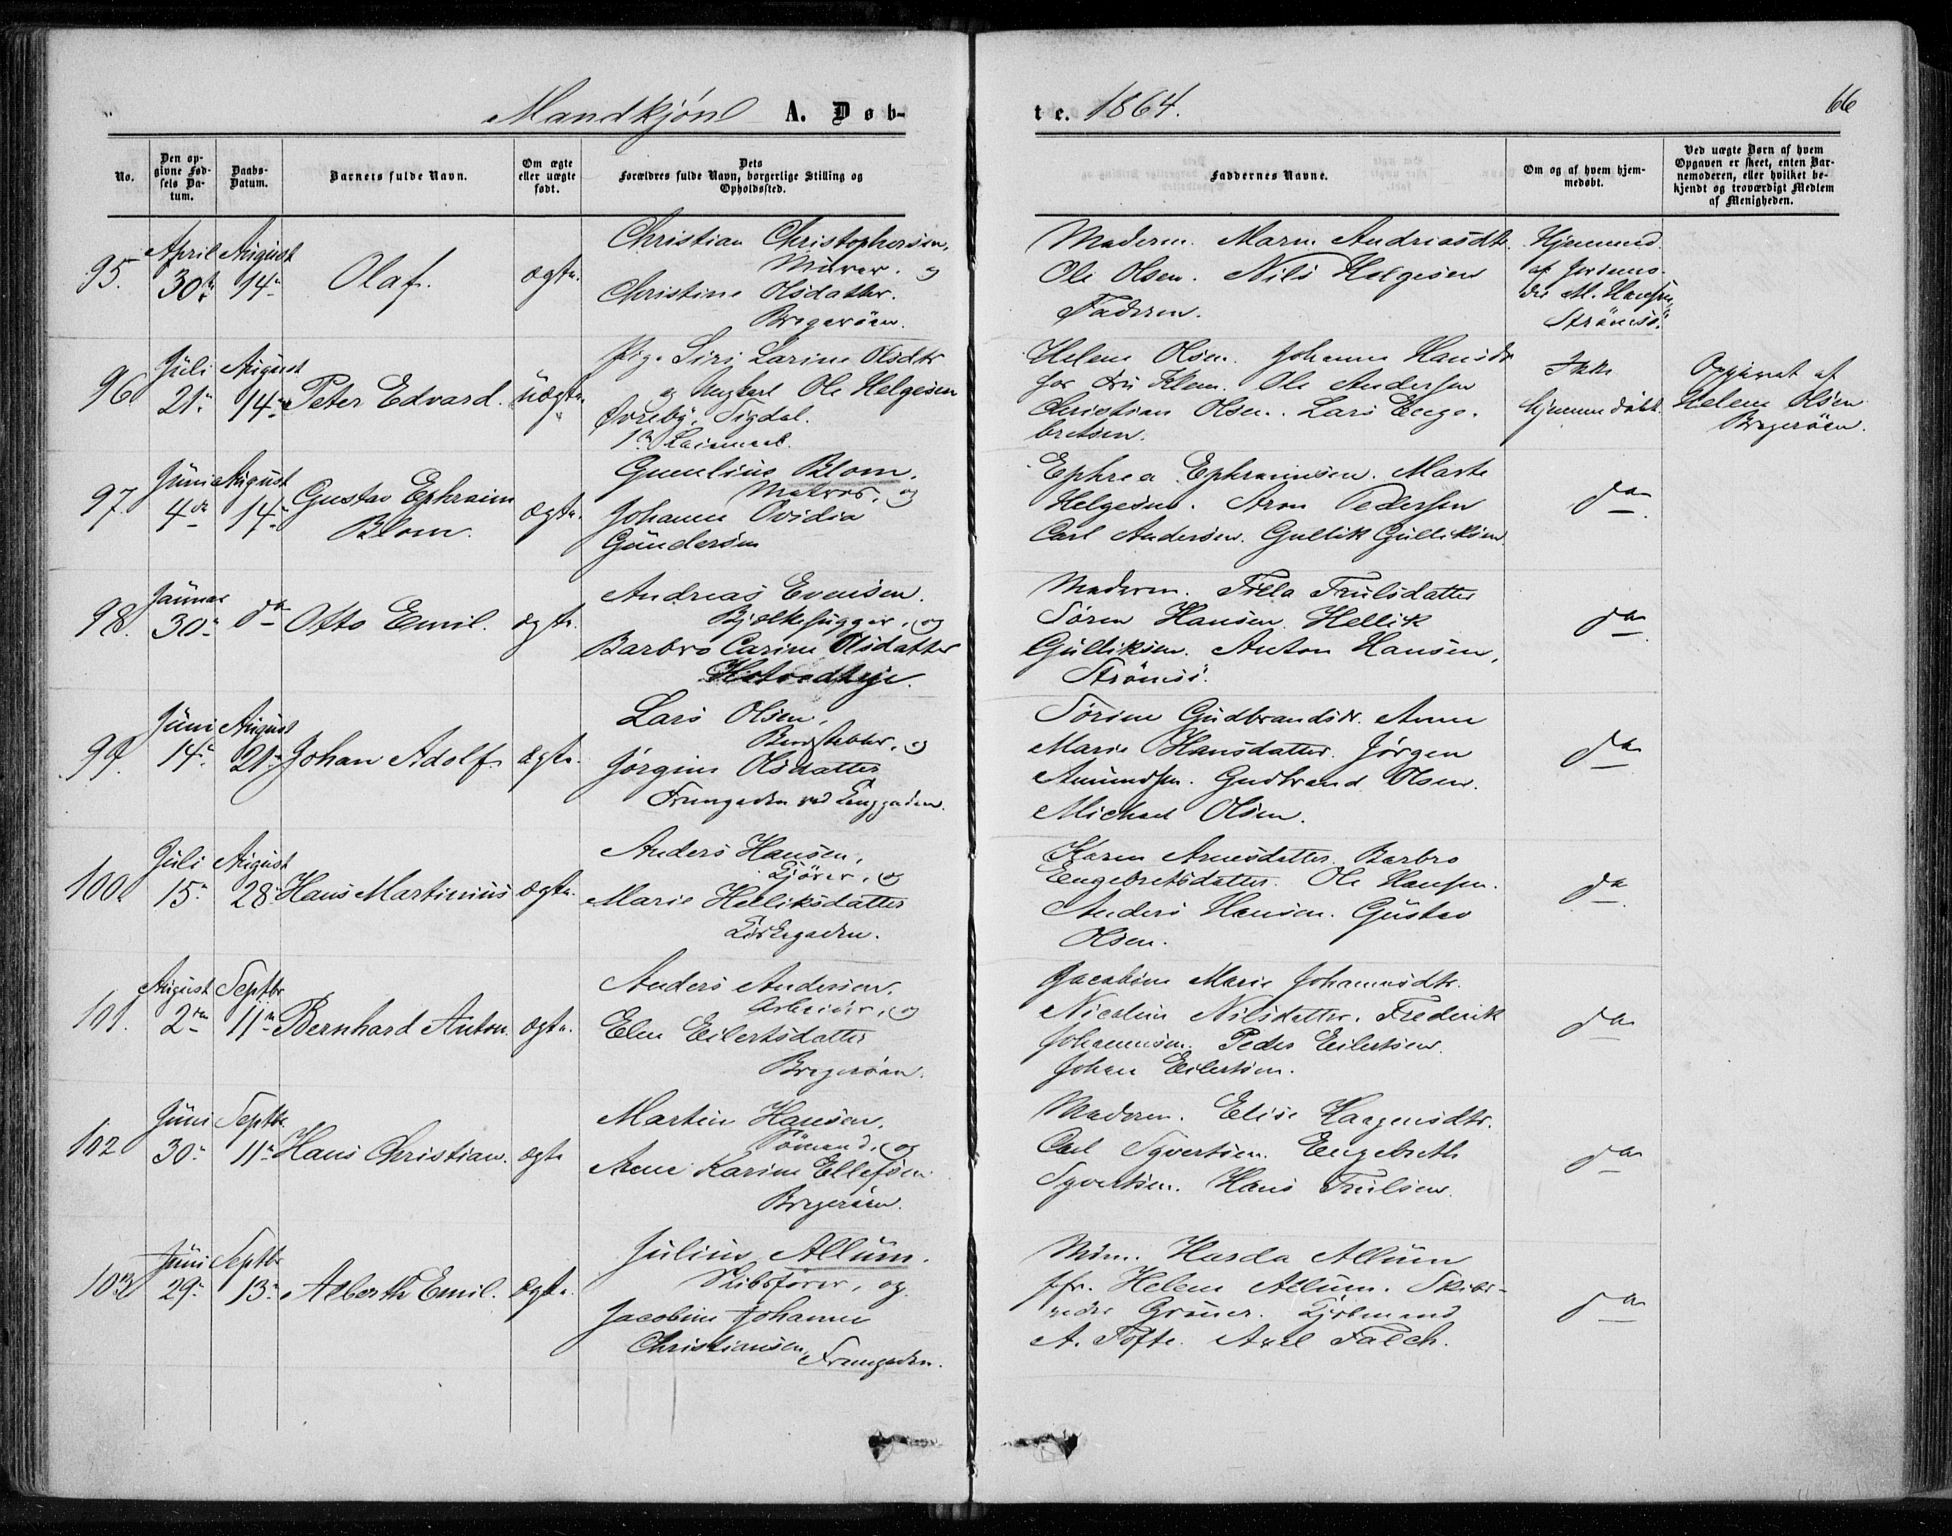 Mandkjøn A. Døb-
te. 1864. 66
No.
Den op-
givne Fød-
sels Da-
tum.
Daabs-
Datum.
Barnets fulde Navn.
Om ægte
eller uægte
født.
Dets
Forældres fulde Navn, borgerlige Stilling og
Opholdssted.
Faddernes Navne.
Om og af hvem hjem-
medøbt.
Ved uægte Børn af hvem
Opgaven er skeet, enten Bar-
nemoderen, eller hvilket be-
kjendt og troværdigt Medlem
af Menigheden.
95.
April
30te
August
14de
Olaf.
ægte.
Christian Christophersen,
Murer. og
Christine Olsdatter.
Bragerøen.
Moderen. Maren Andriasdtr.
Ole Olsen. Nils Helgesen
Faderen.
Hjemmed.
af Jordemo-
der M. Hansen,
Strømsø.
96
Juli
21de
August
14de
Peter Edvard.
uægte.
Pige Siri Larine Olsdtr
og Ungkarl Ole Helgesen
Øvreby, Sigdal.
1ste Leiermaal.
Helene Olsen. Johanne Hansdtr
for Fru Klem. Ole Andersen
Christian Olsen. Lars Enge-
bretsen.
Ikke
hjemmedøbt.
Opgivet af
Helene Olsen
Bragerøen.
97.
Juni
4de
August
14de
Gustav Ephraim
Blom.
ægte.
Gunelius Blom.
Matros, og
Johanne Ovidia
Gundersen
Ephrea Ephraimsen. Marte
Helgesen. Aron Pedersen
Carl Andersen. Gullik Gulliksen.
do
98.
Januar
30de
do
Otto Emil.
ægte.
Andreas Evensen.
Bjælkehugger, og
Barbro Carine Olsdatter
Hotvedteje.
Moderen. Tilla Trulsdatter
Søren Hansen. Hellik
Gulliksen. Anton Hansen,
Strømsø.
do
99.
Juni
14de
August
21de
Johan Adolf.
ægte.
Lars Olsen,
og
Jørgine Olsdatter
Tverngaden ved Langgaden.
Sørine Gudbrandsdr. Anne
Marie Hansdatter. Jørgen
Amundsen. Gudbrand Olsen.
Michael Olsen.
do
100.
Juli
15de
August
28de
Hans Martinius
ægte.
Anders Hansen,
Kjører, og
Marie Helliksdatter
Kirkegaden.
Karen Arnesdatter. Barbro
Engebretsdatter. Ole Hansen.
Anders Hansen. Gustav
Olsen.
do
101.
August
2den
Septbr
11te
Bernhard Anton.
ægte.
Anders Andersen.
Arbeider, og
Elen Eilertsdatter
Bragerøen.
Jacobine Marie Johannesdtr.
Nicoline Nilsdatter. Frederik
Johannesen. Peder Eilertsen.
Johan Eilertsen.
do
102
Juni
30de
Septbr
11te
Hans Christian.
ægte
Martin Hansen.
Sømand, og
Anne Karine Ellefsen
Bragerøen.
Moderen. Elise Haagensdtr.
Carl Syvertsen. Engebreth
Syvertsen. Hans Trulsen.
do
103
Juni
29de
Septbr
13de
Alberth Emil.
ægte.
Julius Allum.
Skibsfører, og
Jacobine Johanne
Christiansen,
Helene Allum. Skibs-
reder Grøner. Kjøbmand
A. Tofte. Axel Falch.
do